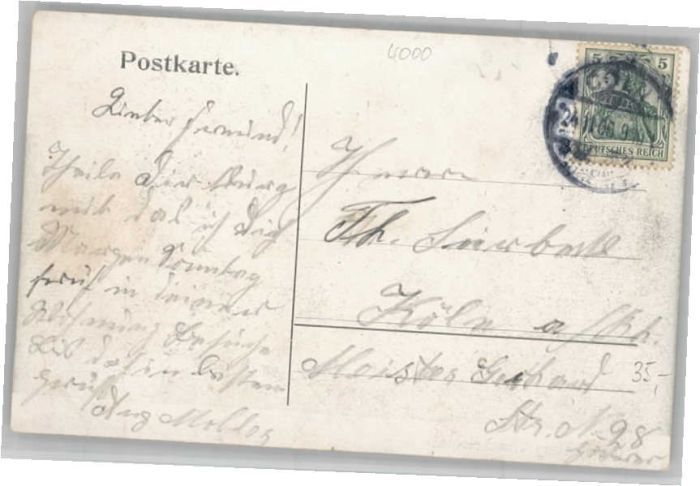 4000
Postkarte.
5 5
DEUTSCHES REICH
Lieber Freund!
Theile Dir
mit das ich Dich
Morgen Sonntag
früh in deiner
Wohnung besuche
Bis dahin besten
Gruß
Aug Moller
Herrn
Th.
Köln a/Rh.
Meister Gerhard
35,-
Str. N. 28